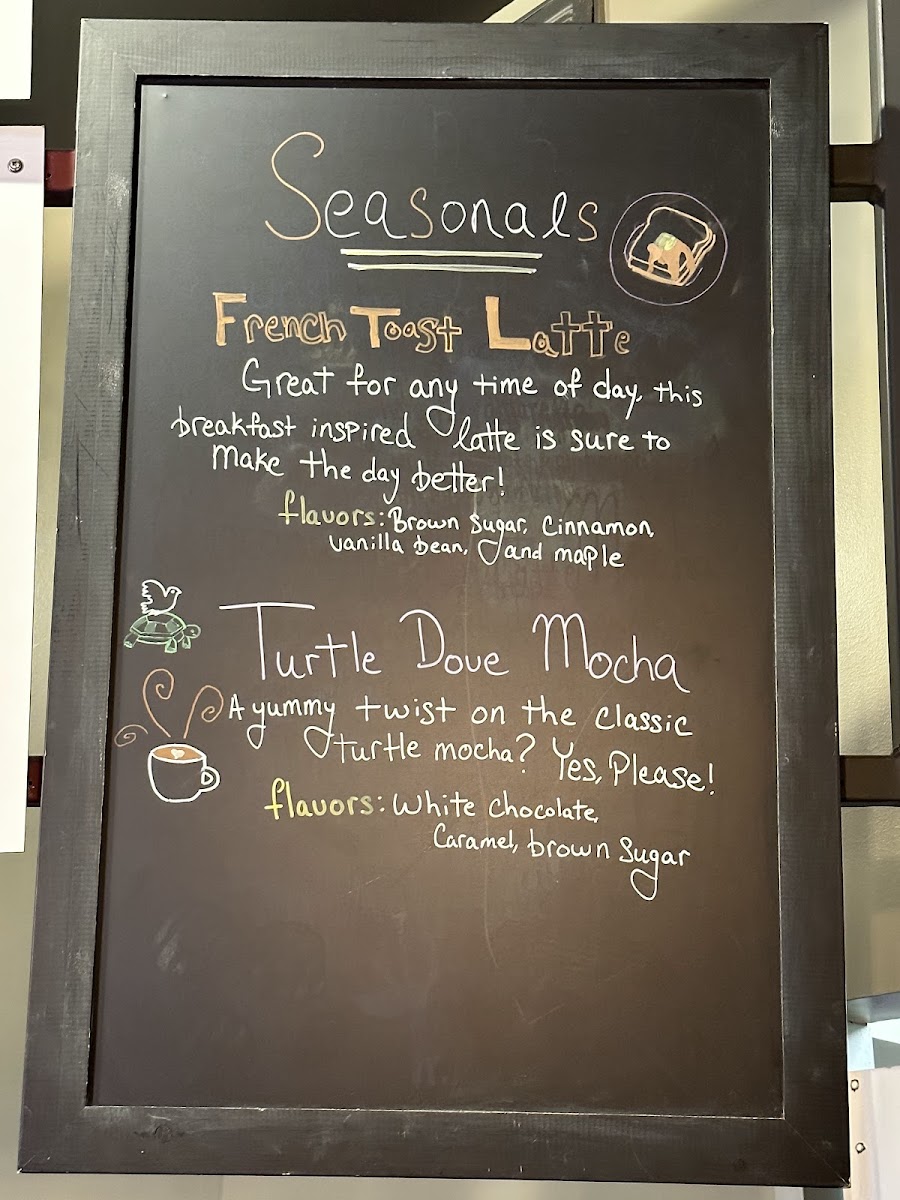 Seasonals
French Toast Latte
Great for any time of day, this
breakfast inspired latte is sure to
make the day better!
flavors: Brown Sugar, Cinnamon,
vanilla bean, and maple
Turtle Dove Mocha
A yummy twist on the classic
turtle mocha? Yes, Please!
flavors: White chocolate,
Caramel, brown Sugar